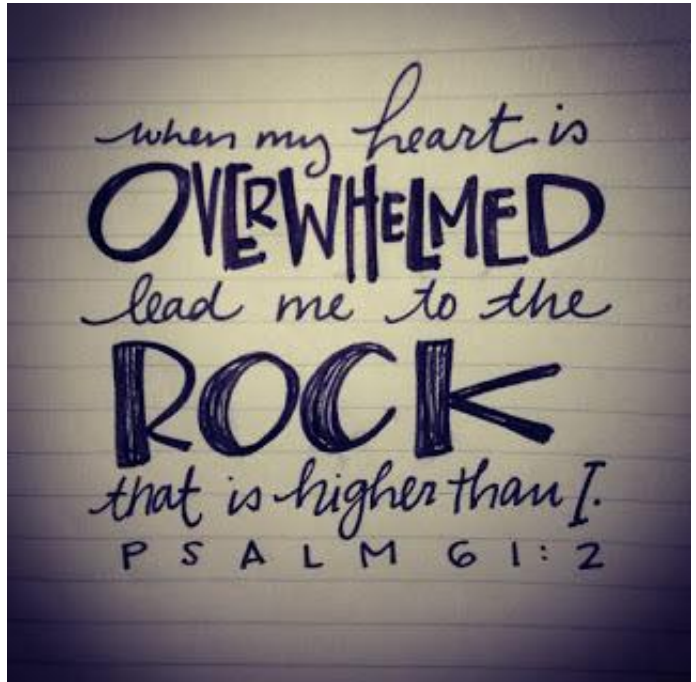 when my heart is
OVERWHELMED
lead me to the
ROCK
that is higher than I.
PSALM 61:2